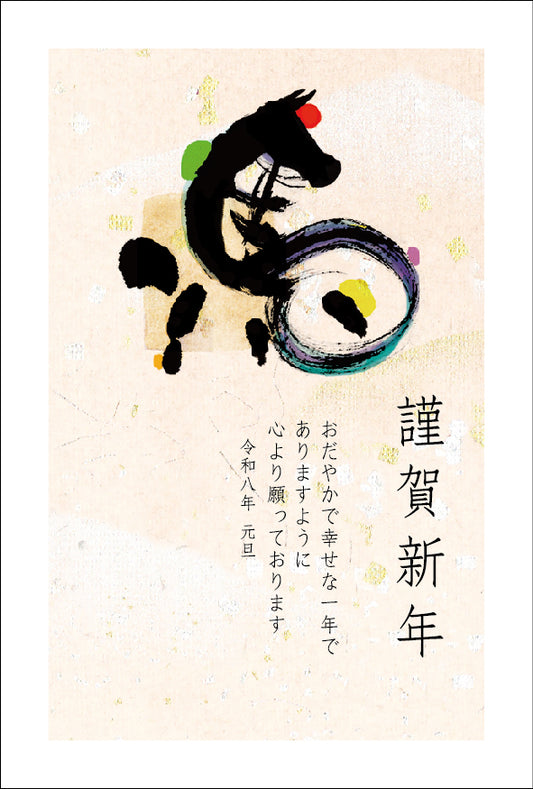 馬
謹賀新年
おだやかで幸せな一年で
ありますように
心より願っております
令和八年 元旦